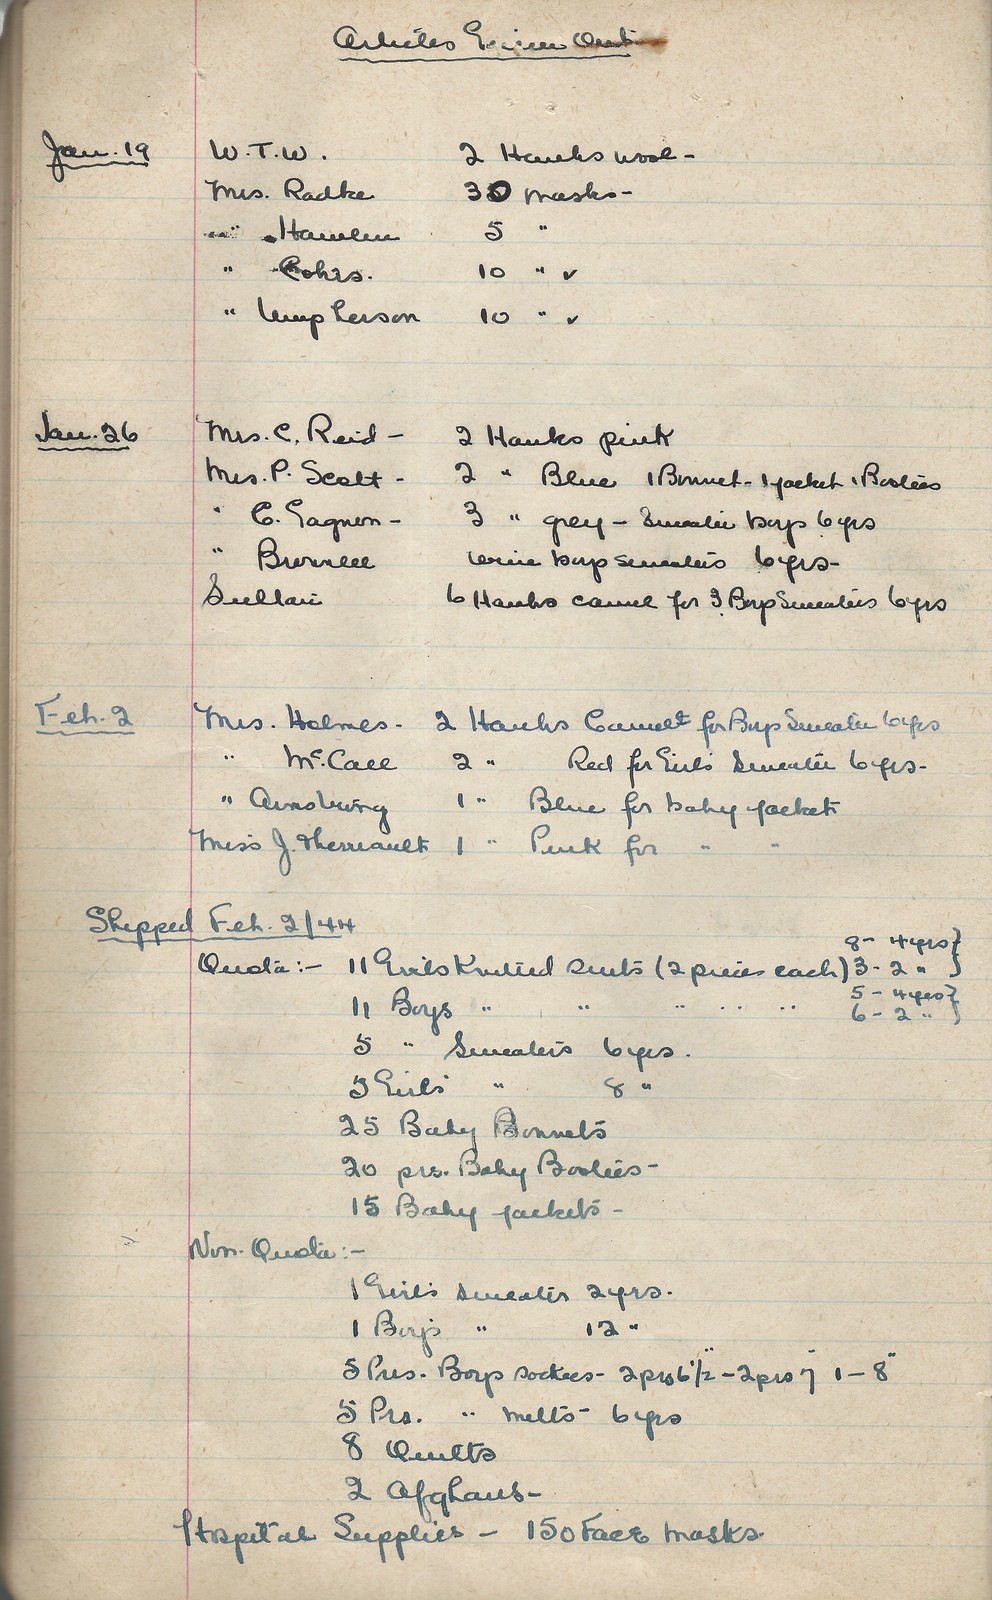 Articles Given Out
Jan. 19 W.T.W. 2 Hanks wool -
Mrs. Radke 30 masks -
" Hamlin 5 "
" Rohrs. 10 " ✓
" 10 " ✓
Jan. 26 Mrs. C. Reid - 2 Hanks pink
Mrs. P. Scott - 2 " Blue 1 Bonnet - 1 jacket 1 Booties
" C. Gagnon - 3 " grey - Sweater boys 6 yrs
" Brownlee boys sweaters 6 yrs -
6 Hanks camel for 3 Boys Sweaters 6 yrs
Feb. 2 Mrs. Holmes - 2 Hanks Camel for Boys Sweater 6 yrs
" McCall 2 " Red for Girl's Sweater 6 yrs -
" Armstrong 1 " Blue for baby jacket
Miss J. Therriault 1 " Pink for " "
Shipped Feb. 2/44
8 - 4 yrs }
Quota :- 11 Girls Knitted suits (2 pieces each) 3 - 2 " }
5 - 4 yrs }
11 Boys " " " " " 6 - 2 " }
5 " Sweaters 6 yrs.
5 Girls' " 8 "
25 Baby Bonnets
20 prs. Baby Booties -
15 Baby jackets -
Non-Quota :-
1 Girl's sweater 2 yrs.
1 Boy's " 12 "
5 Prs. Boys sockees - 2 prs 6 1/2" - 2 prs 7" 1 - 8"
5 Prs. " mitts - 6 yrs
8 Quilts
2 Afghans -
Hospital Supplies - 150 Face masks.